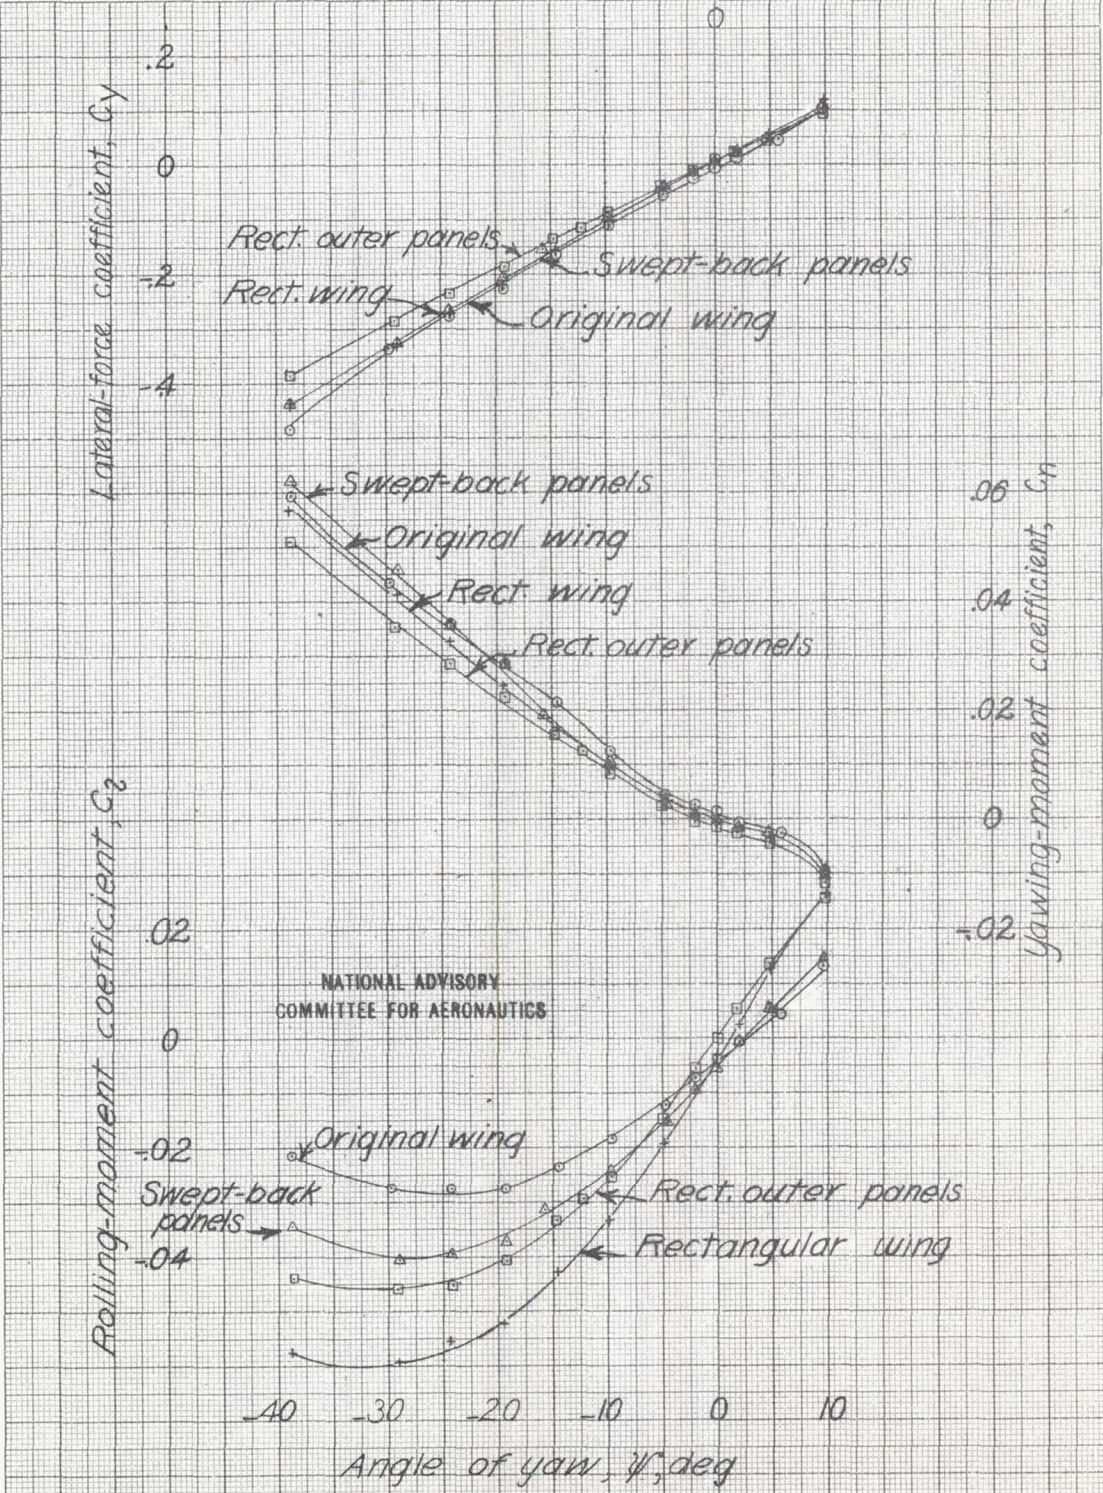 0
.2
0
-.2
-.4
Lateral-force coefficient, Cy
Rect. outer panels
Swept-back panels
Rect. wing
Original wing
Swept-back panels
Original wing
Rect. wing
Rect. outer panels
.06
.04
.02
0
-.02
Yawing-moment coefficient, Cn
Rolling-moment coefficient, Cl
.02
0
-.02
-.04
NATIONAL ADVISORY
COMMITTEE FOR AERONAUTICS
Original wing
Swept-back
panels
Rect. outer panels
Rectangular wing
-40 -30 -20 -10 0 10
Angle of yaw, ψ, deg